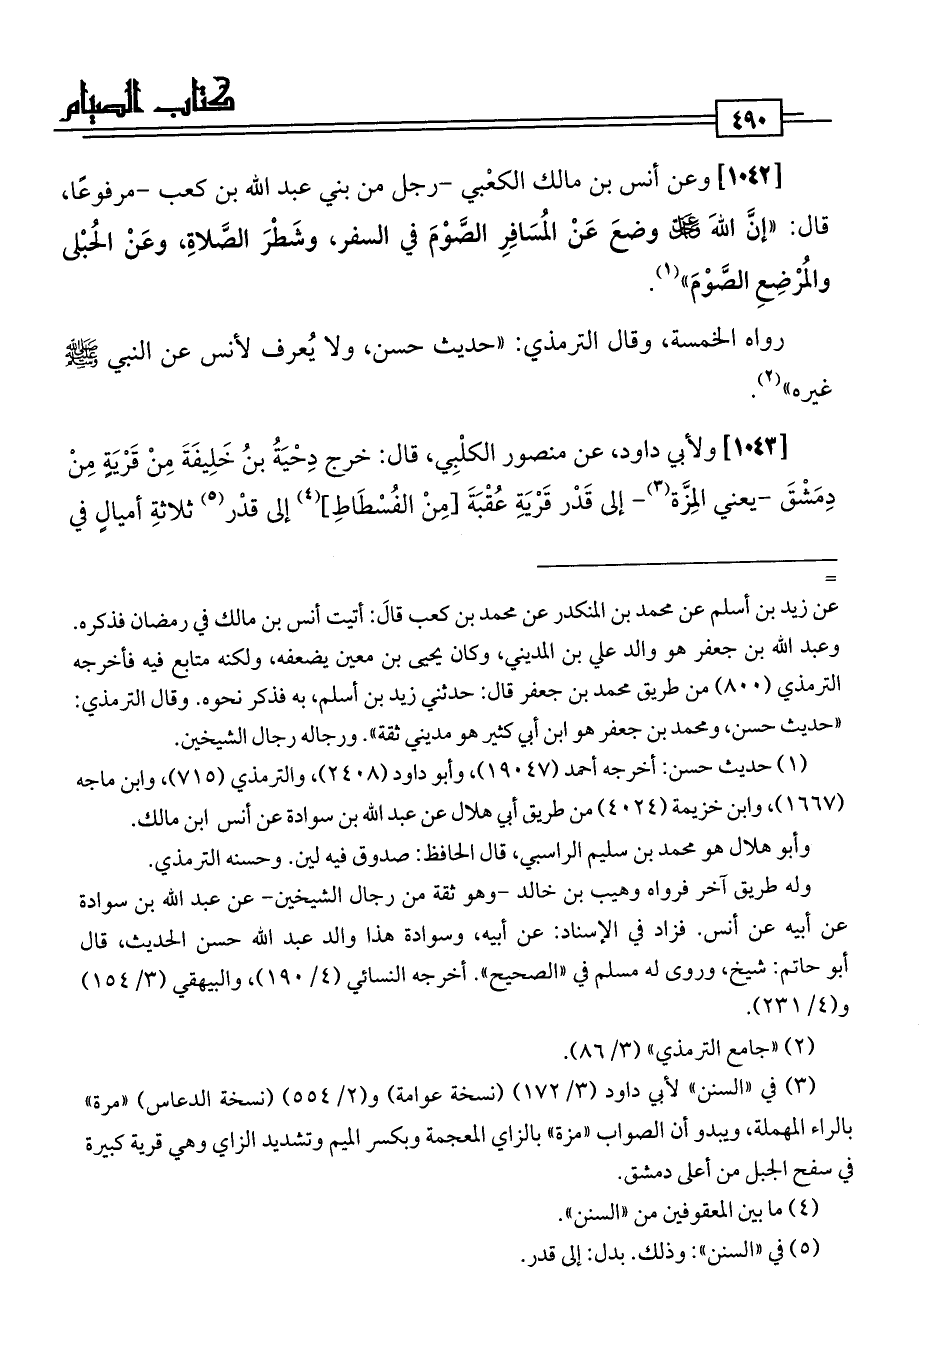 كتاب الصيام
٤٩٠
[١٠٤٢] وعن أنس بن مالك الكعْبي -رجل من بني عبد الله بن كعب -مرفوعًا،
قال: «إنَّ اللهَ ﷻ وضعَ عَنْ المُسَافِرِ الصَّوْمَ في السفر، وشَطْرَ الصَّلاةِ، وعَنْ الحُبْلى
والمُرْضِعِ الصَّوْمَ»(١).
رواه الخمسة، وقال الترمذي: «حديث حسن، ولا يُعرف لأنس عن النبي ﷺ
غيره»(٢).
[١٠٤٣] ولأبي داود، عن منصور الكلْبِي، قال: خرج دِحْيَةُ بنُ خَلِيفَةَ مِنْ قَرْيَةٍ مِنْ
دِمَشْقَ -يعني المِزَّة(٣)- إلى قَدْر قَرْيَةِ عُقْبَةَ [مِنْ الفُسْطَاطِ](٤) إلى قدْر(٥) ثلاثةِ أميالٍ في
=
عن زيد بن أسلم عن محمد بن المنكدر عن محمد بن كعب قالَ: أتيت أنس بن مالك في رمضان فذكره.
وعبد الله بن جعفر هو والد علي بن المديني، وكان يحيى بن معين يضعفه، ولكنه متابع فيه فأخرجه
الترمذي (٨٠٠) من طريق محمد بن جعفر قال: حدثني زيد بن أسلم، به فذكر نحوه. وقال الترمذي:
«حديث حسن، ومحمد بن جعفر هو ابن أبي كثير هو مديني ثقة». ورجاله رجال الشيخين.
(١) حديث حسن: أخرجه أحمد (١٩٠٤٧)، وأبو داود (٢٤٠٨)، والترمذي (٧١٥)، وابن ماجه
(١٦٦٧)، وابن خزيمة (٤٠٢٤) من طريق أبي هلال عن عبد الله بن سوادة عن أنس ابن مالك.
وأبو هلال هو محمد بن سليم الراسبي، قال الحافظ: صدوق فيه لين. وحسنه الترمذي.
وله طريق آخر فرواه وهيب بن خالد -وهو ثقة من رجال الشيخين- عن عبد الله بن سوادة
عن أبيه عن أنس. فزاد في الإسناد: عن أبيه، وسوادة هذا والد عبد الله حسن الحديث، قال
أبو حاتم: شيخ، وروى له مسلم في «الصحيح». أخرجه النسائي (٤/ ١٩٠)، والبيهقي (٣/ ١٥٤)
و(٤/ ٢٣١).
(٢) «جامع الترمذي» (٣/ ٨٦).
(٣) في «السنن» لأبي داود (٣/ ١٧٢) (نسخة عوامة) و(٢/ ٥٥٤) (نسخة الدعاس) «مرة»
بالراء المهملة، ويبدو أن الصواب «مزة» بالزاي المعجمة وبكسر الميم وتشديد الزاي وهي قرية كبيرة
في سفح الجبل من أعلى دمشق.
(٤) ما بين المعقوفين من «السنن».
(٥) في «السنن»: وذلك. بدل: إلى قدر.